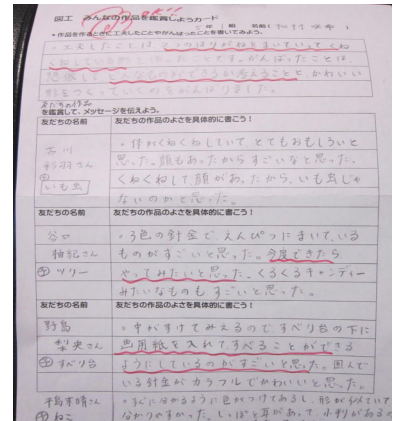 図工 みんなの作品を鑑賞しようカード
OK!!
年 組 名前(
・作品を作るときに工夫したことやがんばったことを書いてみよう。
・工夫したことは
くねしている がんばったことは、
想像して を考えること と、かわいい
形をつくっていくのをがんばりました。
友だちの作品
を鑑賞して、メッセージを伝えよう。
友だちの名前 友だちの作品のよさを具体的に書こう！
・体がくねくねしていて、とてもおもしろいと
さん 思った。顔もあったからすごいなと思った。
いも虫 くねくねして、顔があったから、いも虫じゃ
ないのかと思った。
友だちの名前 友だちの作品のよさを具体的に書こう！
谷口 ・3色の針金で、えんぴつにまいている
さん ものがすごいと思った。今度できたら
ツリー やってみたいと思った。くるくるキャンディー
みたいなものもすごいと思った。
友だちの名前 友だちの作品のよさを具体的に書こう！
野島 ・中がすけてみえるので、すべり台の下に
さん 画用紙を入れてすべることができる
すべり台 ようにしているのがすごいと思った。囲んで
いる針金がカラフルでかわいいと思った。
さん ・すぐに分かるように色がつけてあるし、形が似ていて
ねこ 分かりやすかった。しっぽと耳があって、